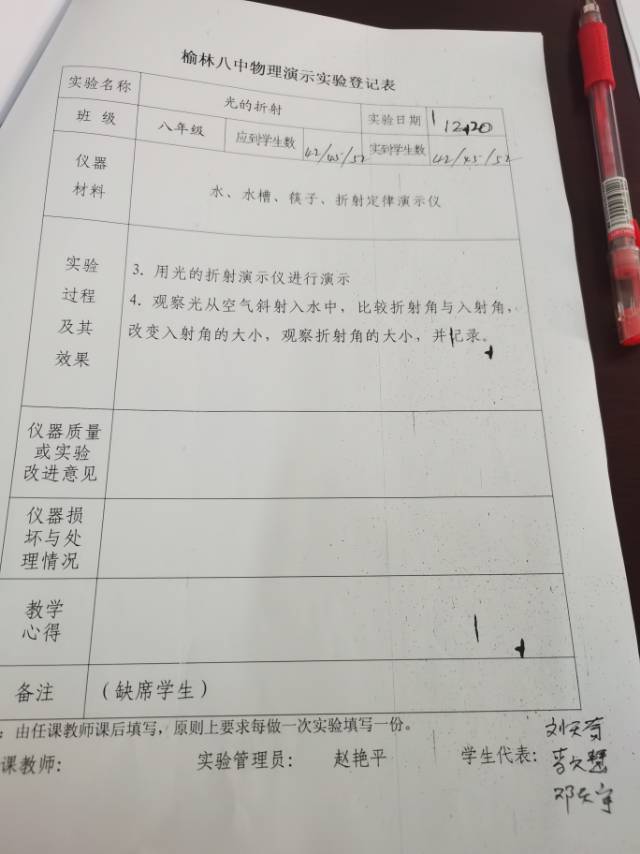 榆林八中物理演示实验登记表
实验名称 光的折射 实验日期 12.20
班 级 八年级 应到学生数 42/45/52 实到学生数 42/45/52
仪器
材料
水、水槽、筷子、折射定律演示仪
实验
过程
及其
效果
3. 用光的折射演示仪进行演示
4. 观察光从空气斜射入水中，比较折射角与入射角，
改变入射角的大小，观察折射角的大小，并记录。
仪器质量
或实验
改进意见
仪器损
坏与处
理情况
教学
心得
备注 （缺席学生）
：由任课教师课后填写，原则上要求每做一次实验填写一份。
课教师： 实验管理员： 赵艳平 学生代表：